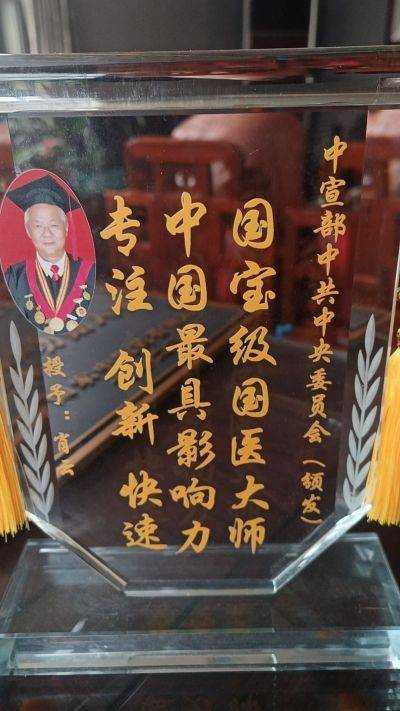 中宣部中共中央委员会（颁发）
国宝级国医大师
中国最具影响力
专注 创新 快速
授予：肖云